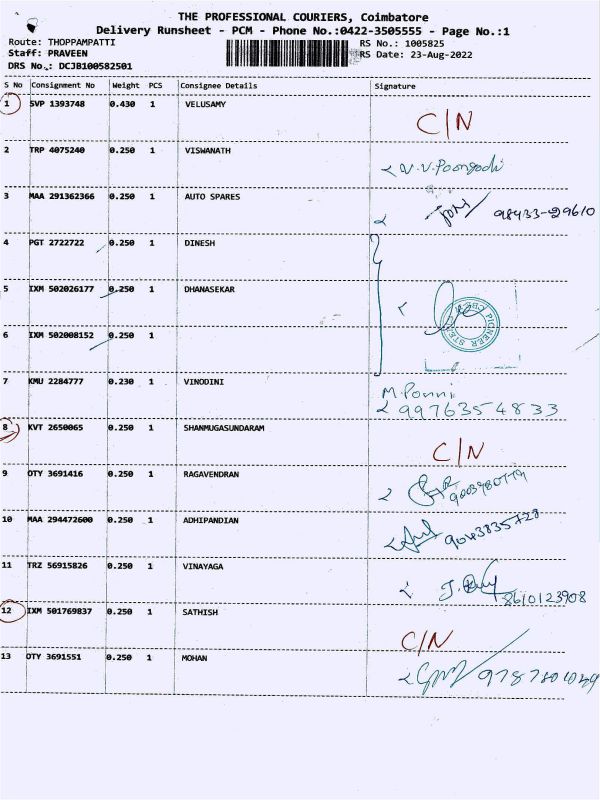 THE PROFESSIONAL COURIERS, Coimbatore
Delivery Runsheet - PCM - Phone No.:0422-3505555 - Page No.:1
Route: THOPPAMPATTI
RS No.: 1005825
Staff: PRAVEEN
RS Date: 23-Aug-2022
DRS No.: DCJB100582501
S No Consignment No Weight PCS Consignee Details Signature
1 SVP 1393748 0.430 1 VELUSAMY C/N
2 TRP 4075240 0.250 1 VISWANATH V.V.Poongodi
3 MAA 291362366 0.250 1 AUTO SPARES 98433-29610
4 PGT 2722722 0.250 1 DINESH
5 IXM 502026177 0.250 1 DHANASEKAR
6 IXM 502008152 0.250 1
7 KMU 2284777 0.230 1 VINODINI M.Ponni
9976354833
8 KVT 2650065 0.250 1 SHANMUGASUNDARAM C/N
9 OTY 3691416 0.250 1 RAGAVENDRAN
10 MAA 294472600 0.250 1 ADHIPANDIAN 9043835728
11 TRZ 56915826 0.250 1 VINAYAGA 8610123908
12 IXM 501769837 0.250 1 SATHISH C/N
13 OTY 3691551 0.250 1 MOHAN